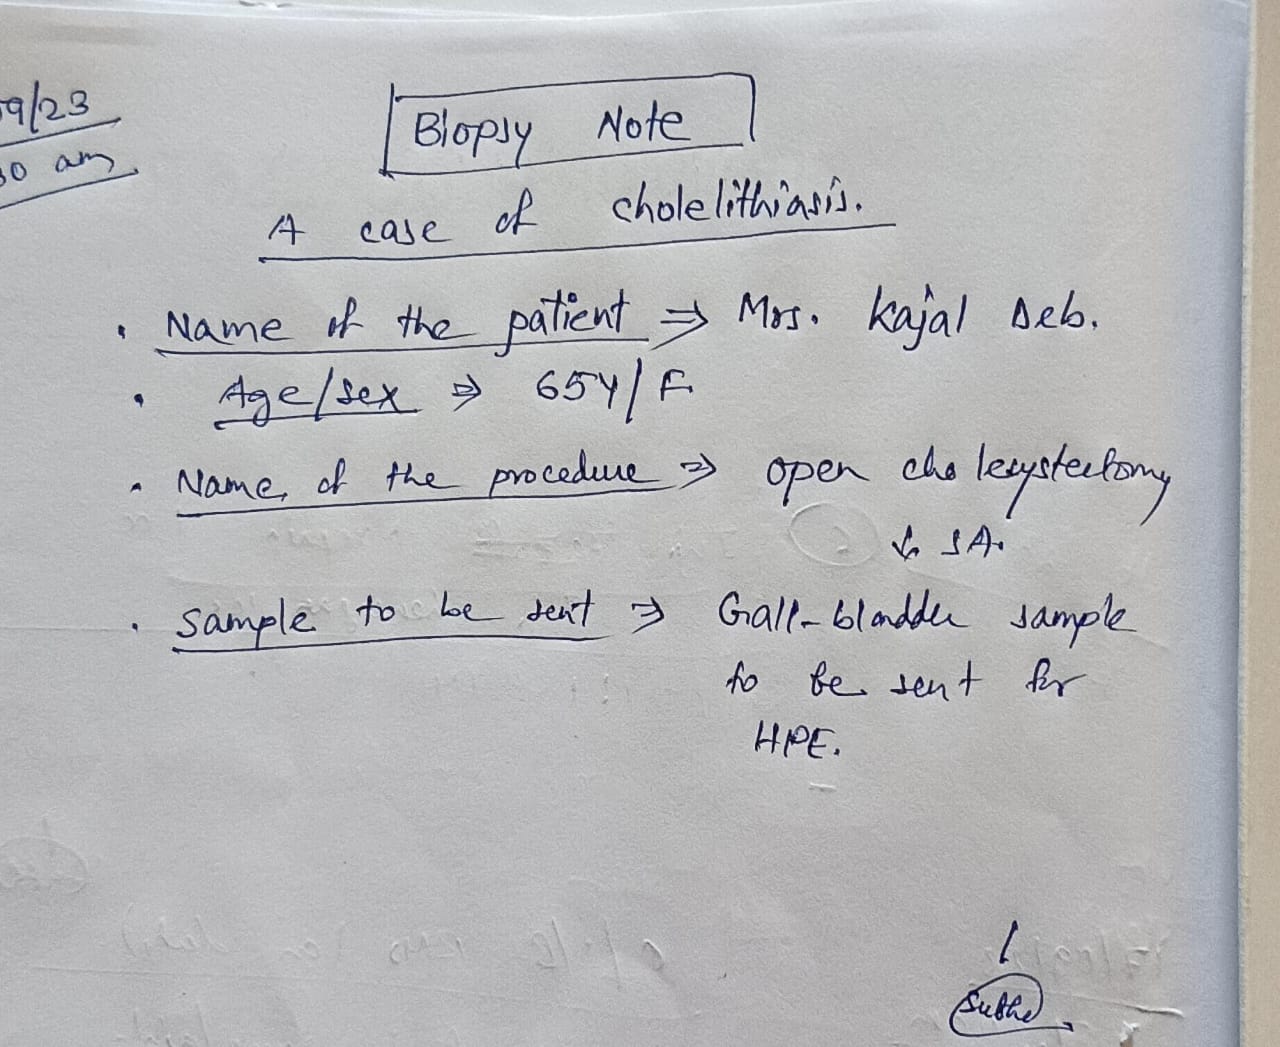 9/23
30 am
Biopsy Note
A case of cholelithiasis.
• Name of the patient ⇒ Mrs. Kajal Deb.
• Age/sex ⇒ 65Y/F
• Name of the procedure ⇒ open cholecystectomy
↓ SA.
• Sample to be sent ⇒ Gall-bladder sample
to be sent for
HPE.